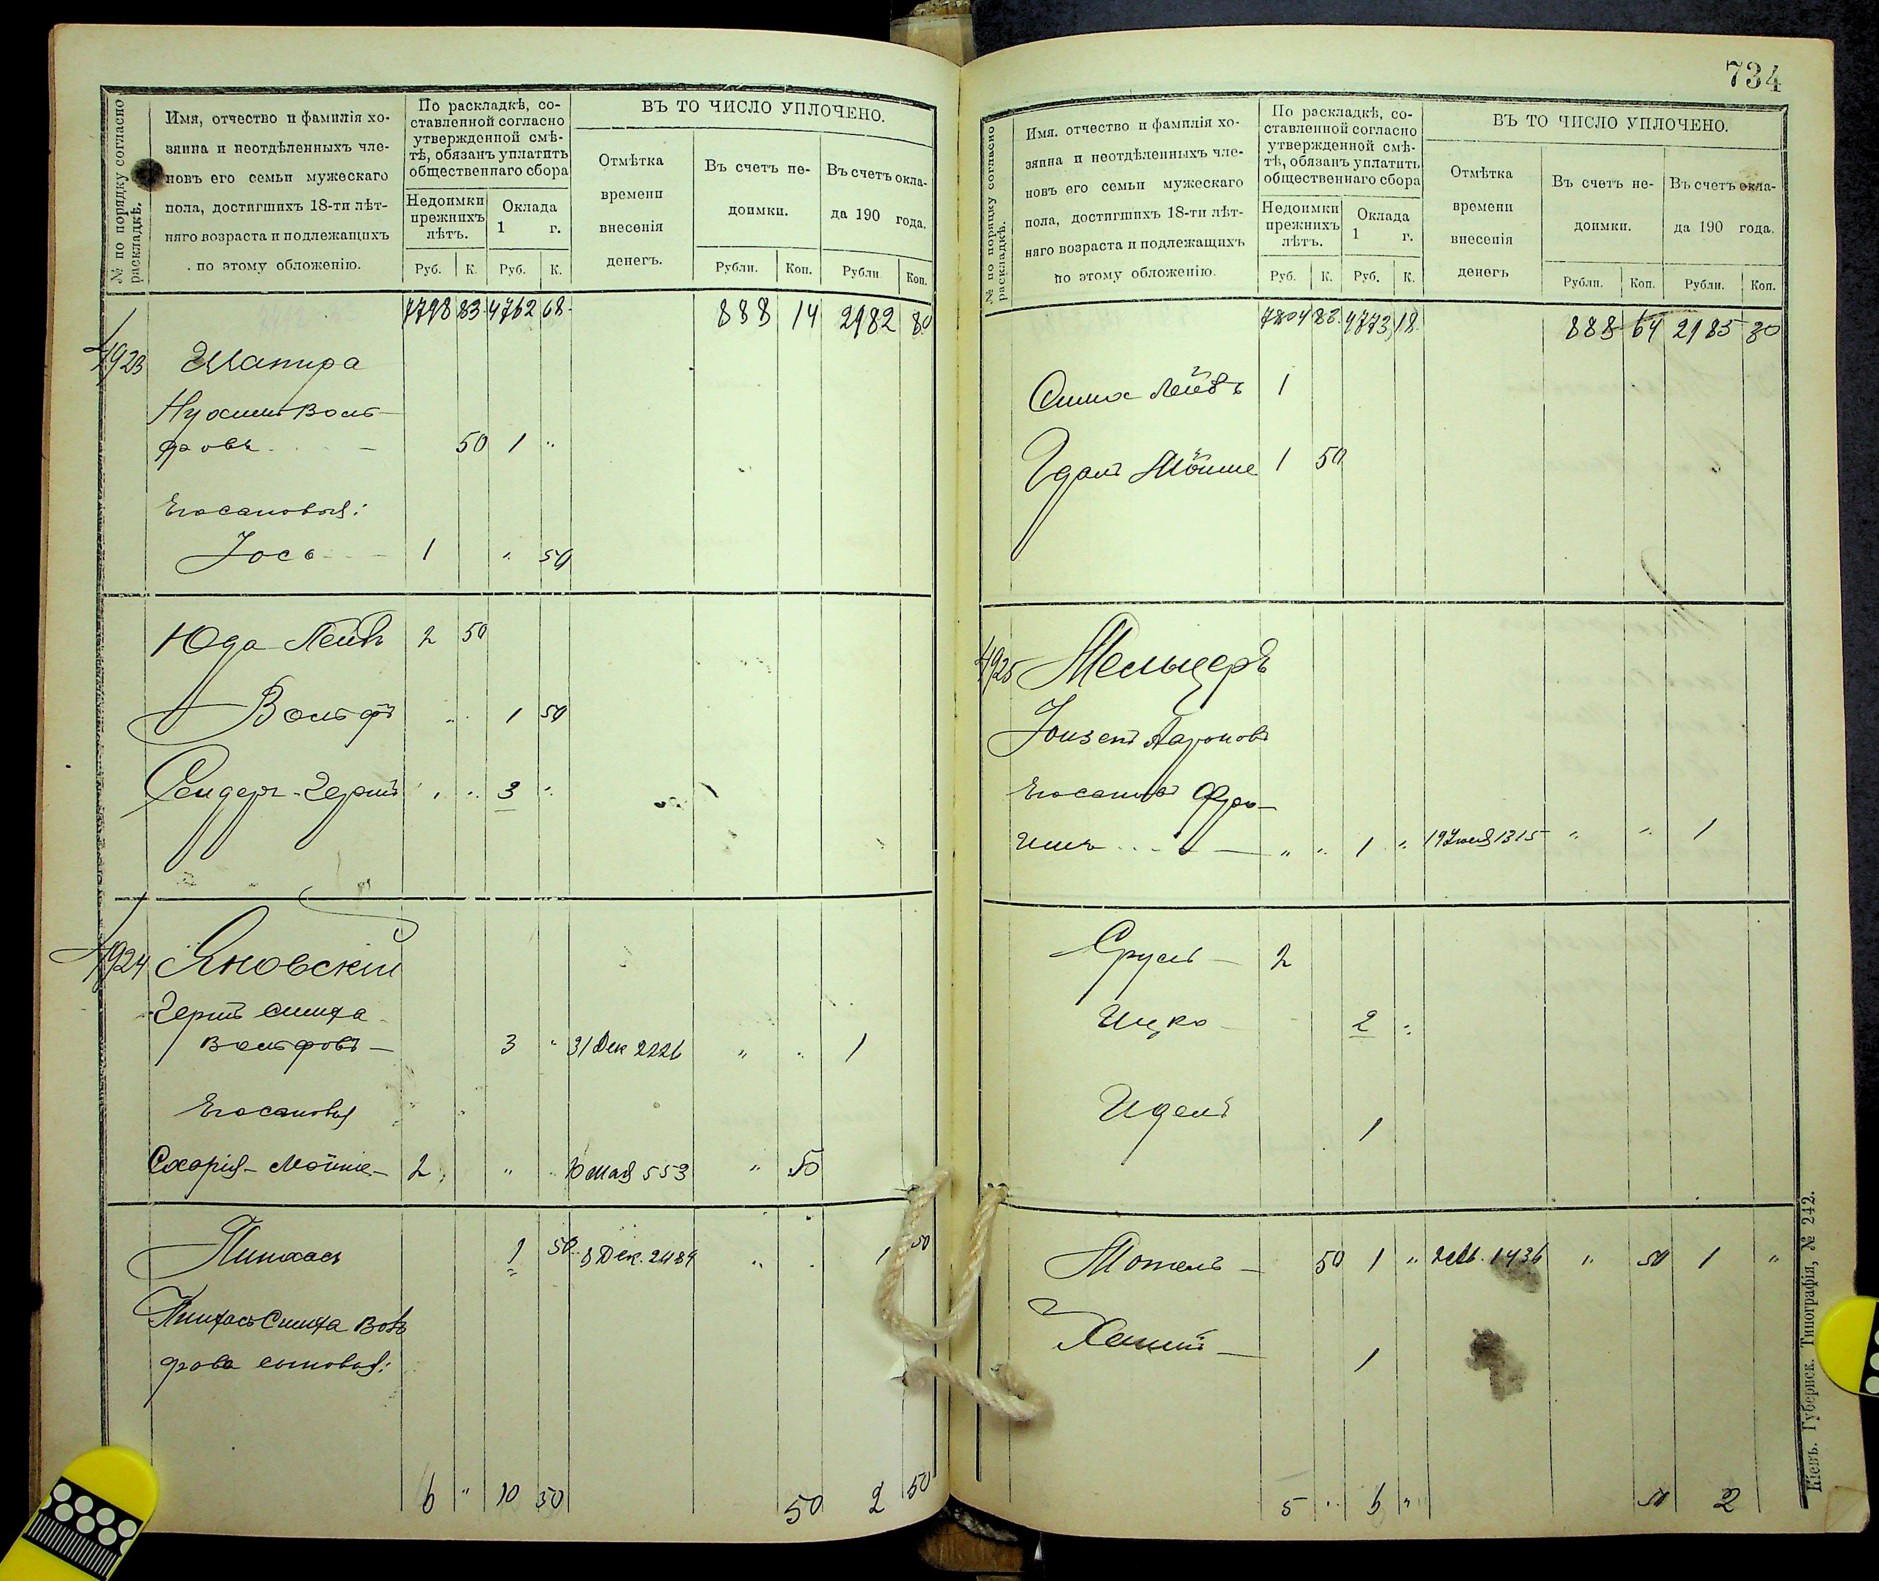 № по порядку согласно раскладкѣ.
Имя, отчество и фамилія хо-
зяина и неотдѣленныхъ чле-
новъ его семьи мужескаго
пола, достигшихъ 18-ти лѣт-
няго возраста и подлежащихъ
по этому обложенію.
По раскладкѣ, со-
ставленной согласно
утвержденной смѣ-
тѣ, обязанъ уплатить
общественнаго сбора
Недоимки
прежнихъ
лѣтъ.
Оклада
1 г.
Руб. К. Руб. К.
ВЪ ТО ЧИСЛО УПЛОЧЕНО.
Отмѣтка
времени
внесенія
денегъ.
Въ счетъ не-
доимки.
Въ счетъ окла-
да 190 года.
Рубли. Коп. Рубли Коп.
7798 83 4762 68 888 14 2182 80
4923 Шапира
Нухимъ Воль-
фовъ 50 1 "
Его сыновья:
Іось 1 " 50
Юда Лейбъ 2 50
Вольфъ " 1 50
Сендеръ-Гершъ " " 3 "
4924 Яновскій
Гершъ Симха
Вольфовъ — 3 " 31 Дек 2226 " " 1
Его сыновья
Сохарія - Мойше - 2 " 10 мая 553 " 50
Пинхасъ 1 50 8 Дек. 2484 " 1 50
Пинхасъ Симха Воль
фова сыновья:
6 " 10 50 50 2 50
734
№ по порядку согласно раскладкѣ.
Имя, отчество и фамилія хо-
зяина и неотдѣленныхъ чле-
новъ его семьи мужескаго
пола, достигшихъ 18-ти лѣт-
няго возраста и подлежащихъ
по этому обложенію.
По раскладкѣ, со-
ставленной согласно
утвержденной смѣ-
тѣ, обязанъ уплатить
общественнаго сбора
Недоимки
прежнихъ
лѣтъ.
Оклада
1 г.
Руб. К. Руб. К.
ВЪ ТО ЧИСЛО УПЛОЧЕНО.
Отмѣтка
времени
внесенія
денегъ
Въ счетъ не-
доимки.
Въ счетъ окла-
да 190 года.
Рубли. Коп. Рубли. Коп.
7804 83 4773 18 888 64 2185 30
Симха Лейбъ 1
Гдаль Мойше 1 50
4925 Мельцеръ
Іойзепъ Ароновъ
Его сыновья Фро-
имъ — " " 1 " 19 Іюня 1315 " " 1
Сруль — 2
Ицко 2 "
Идель 1
Мотель — 50 1 " 1436 " 50 1 "
Хаимъ — 1
5 " 6 " 50 2
Кіевъ. Губернск. Типографія, № 242.